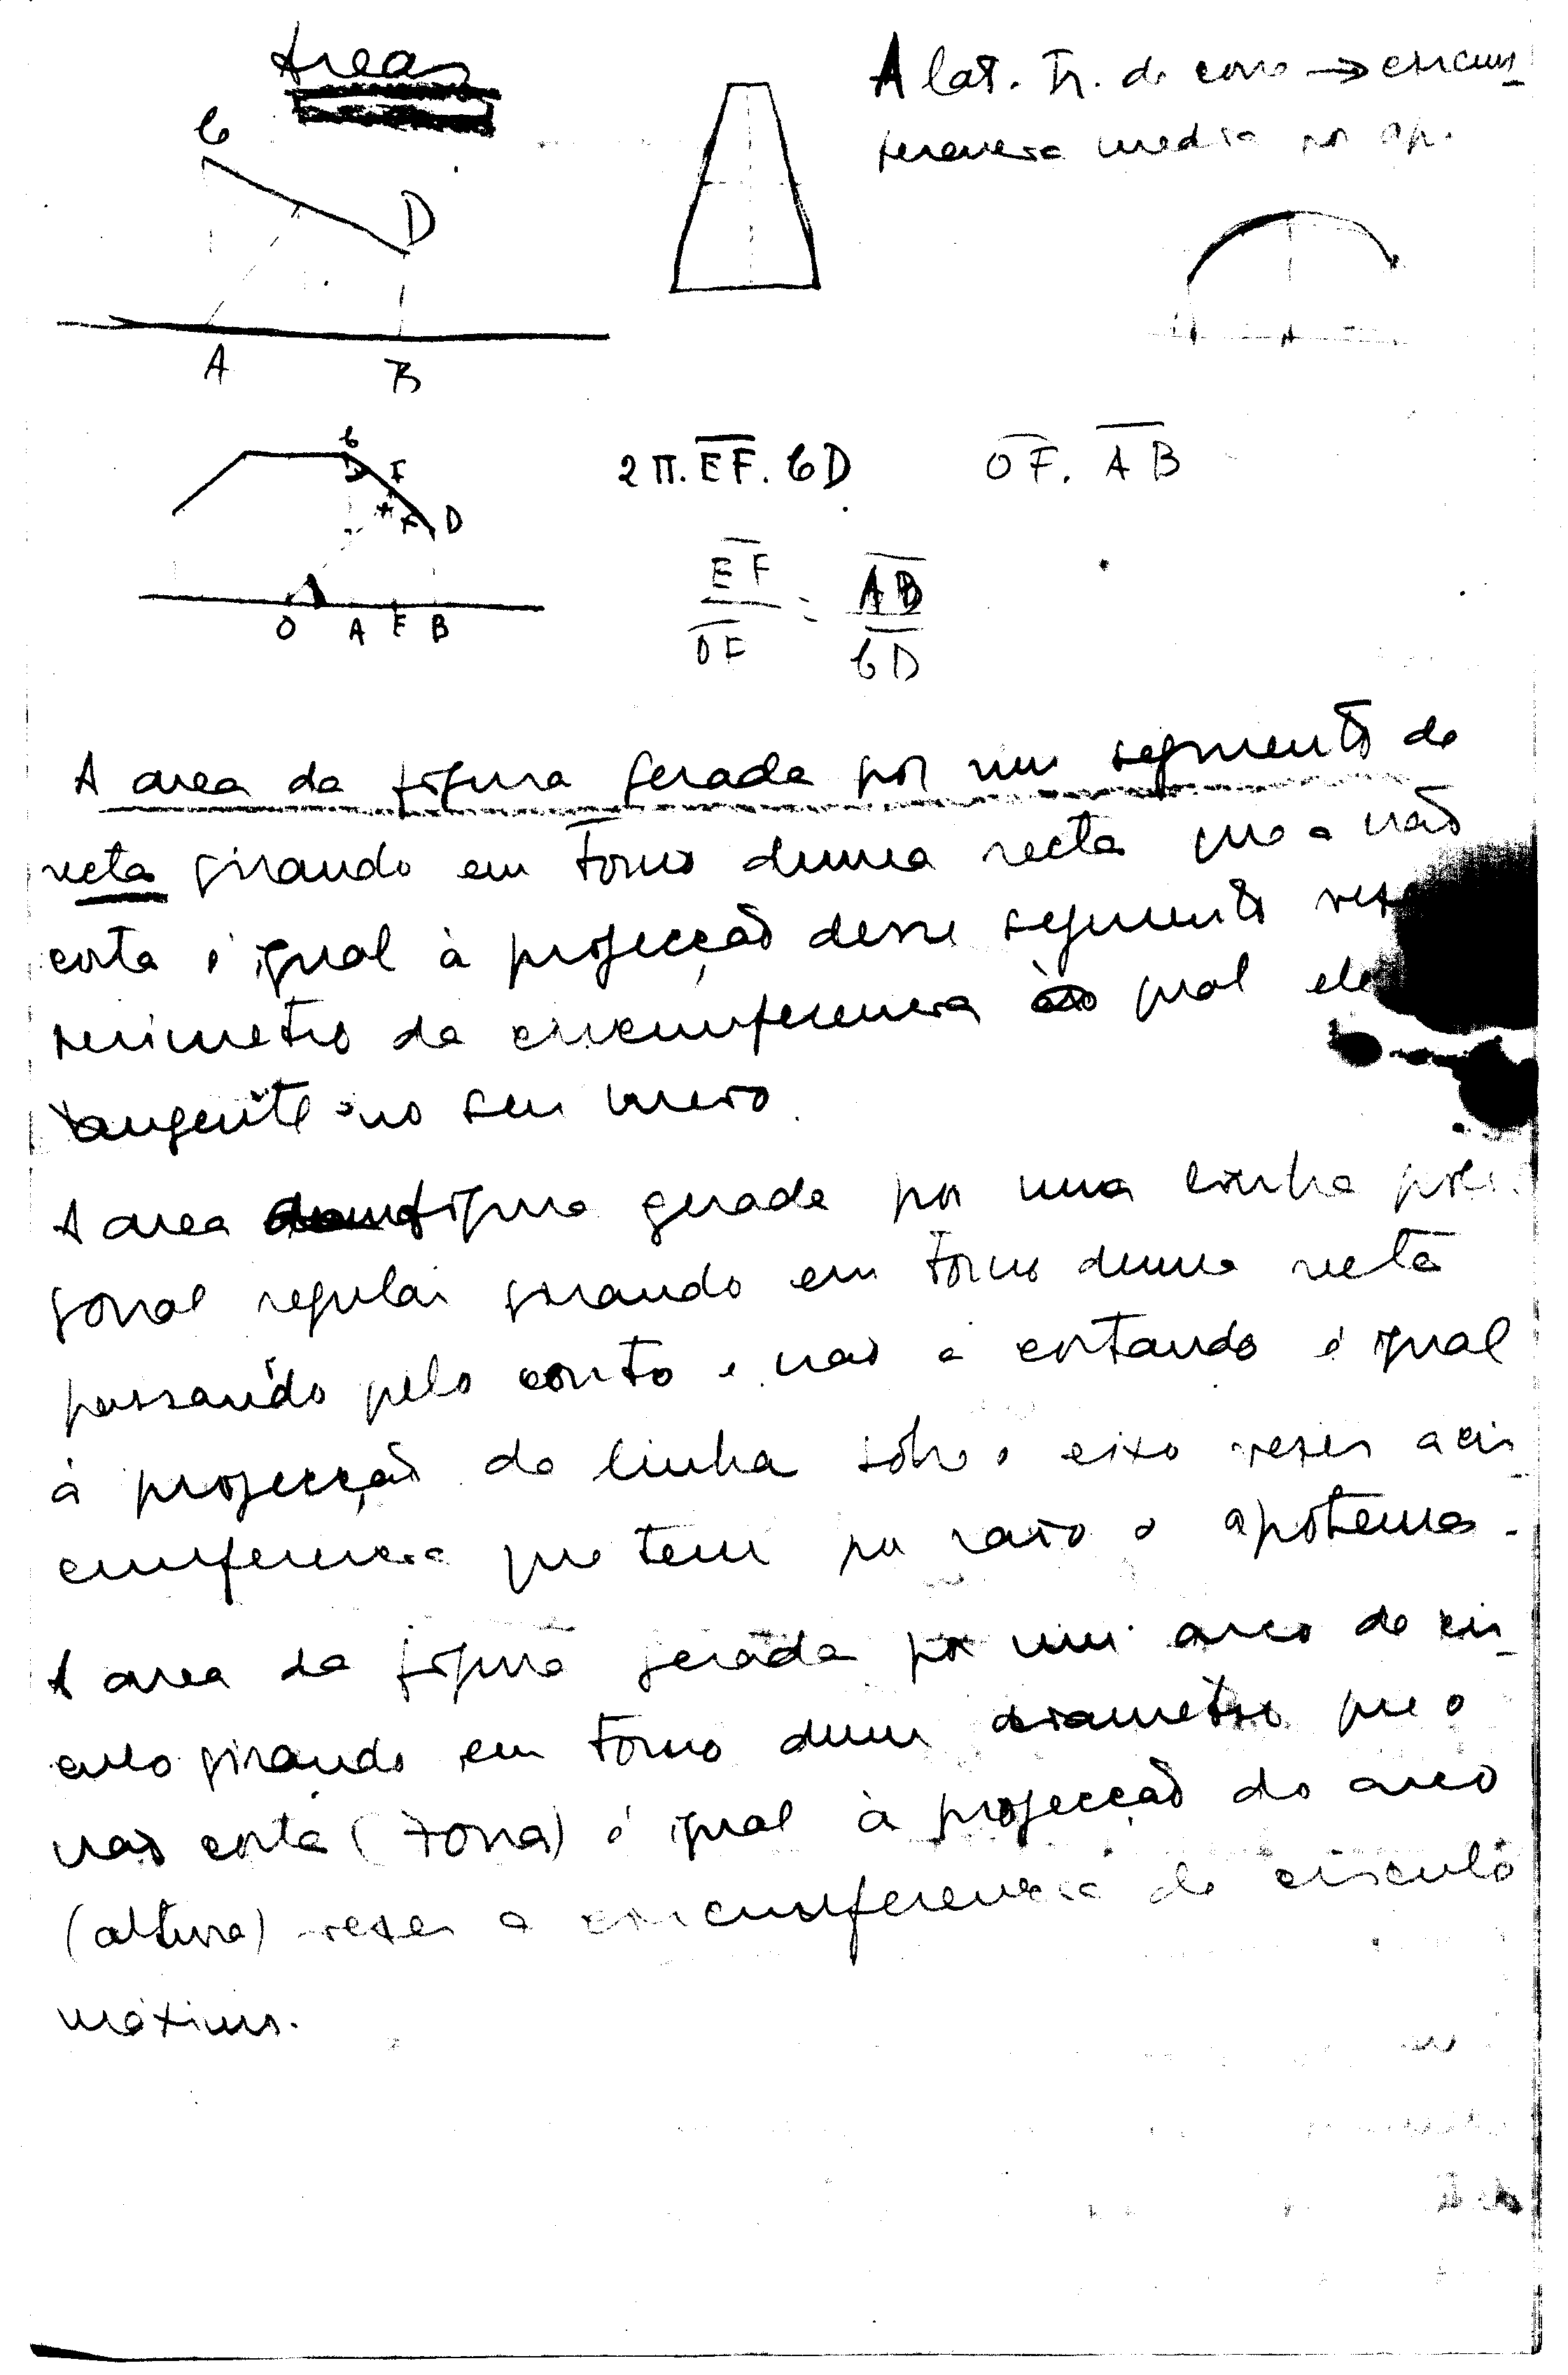 Areas
A lat. Tr. de cone → circun_
ferencia media por ap.
C
D
A B
C
D F
F D
O A E B
2π. EF. CD OF. AB
EF/OF = AB/CD
A area da figura gerada por um segmento de
recta girando em torno duma recta que a não
corta é igual à projecção desse segmento
perimetro da circumferencia qual ele
tangente no seu meio.
A area figura gerada por uma linha poli
gonal regular girando em torno duma recta
passando pelo e não a cortando é igual
à projecção da linha sobre o eixo vezes a cir_
cumferencia que tem por raio o apotema.
A area da figura gerada por um arco de cir_
culo girando em torno dum diametro que o
não corta (zona) é igual à projecção do arco
(altura) vezes a circumferencia do circulo
máximo.